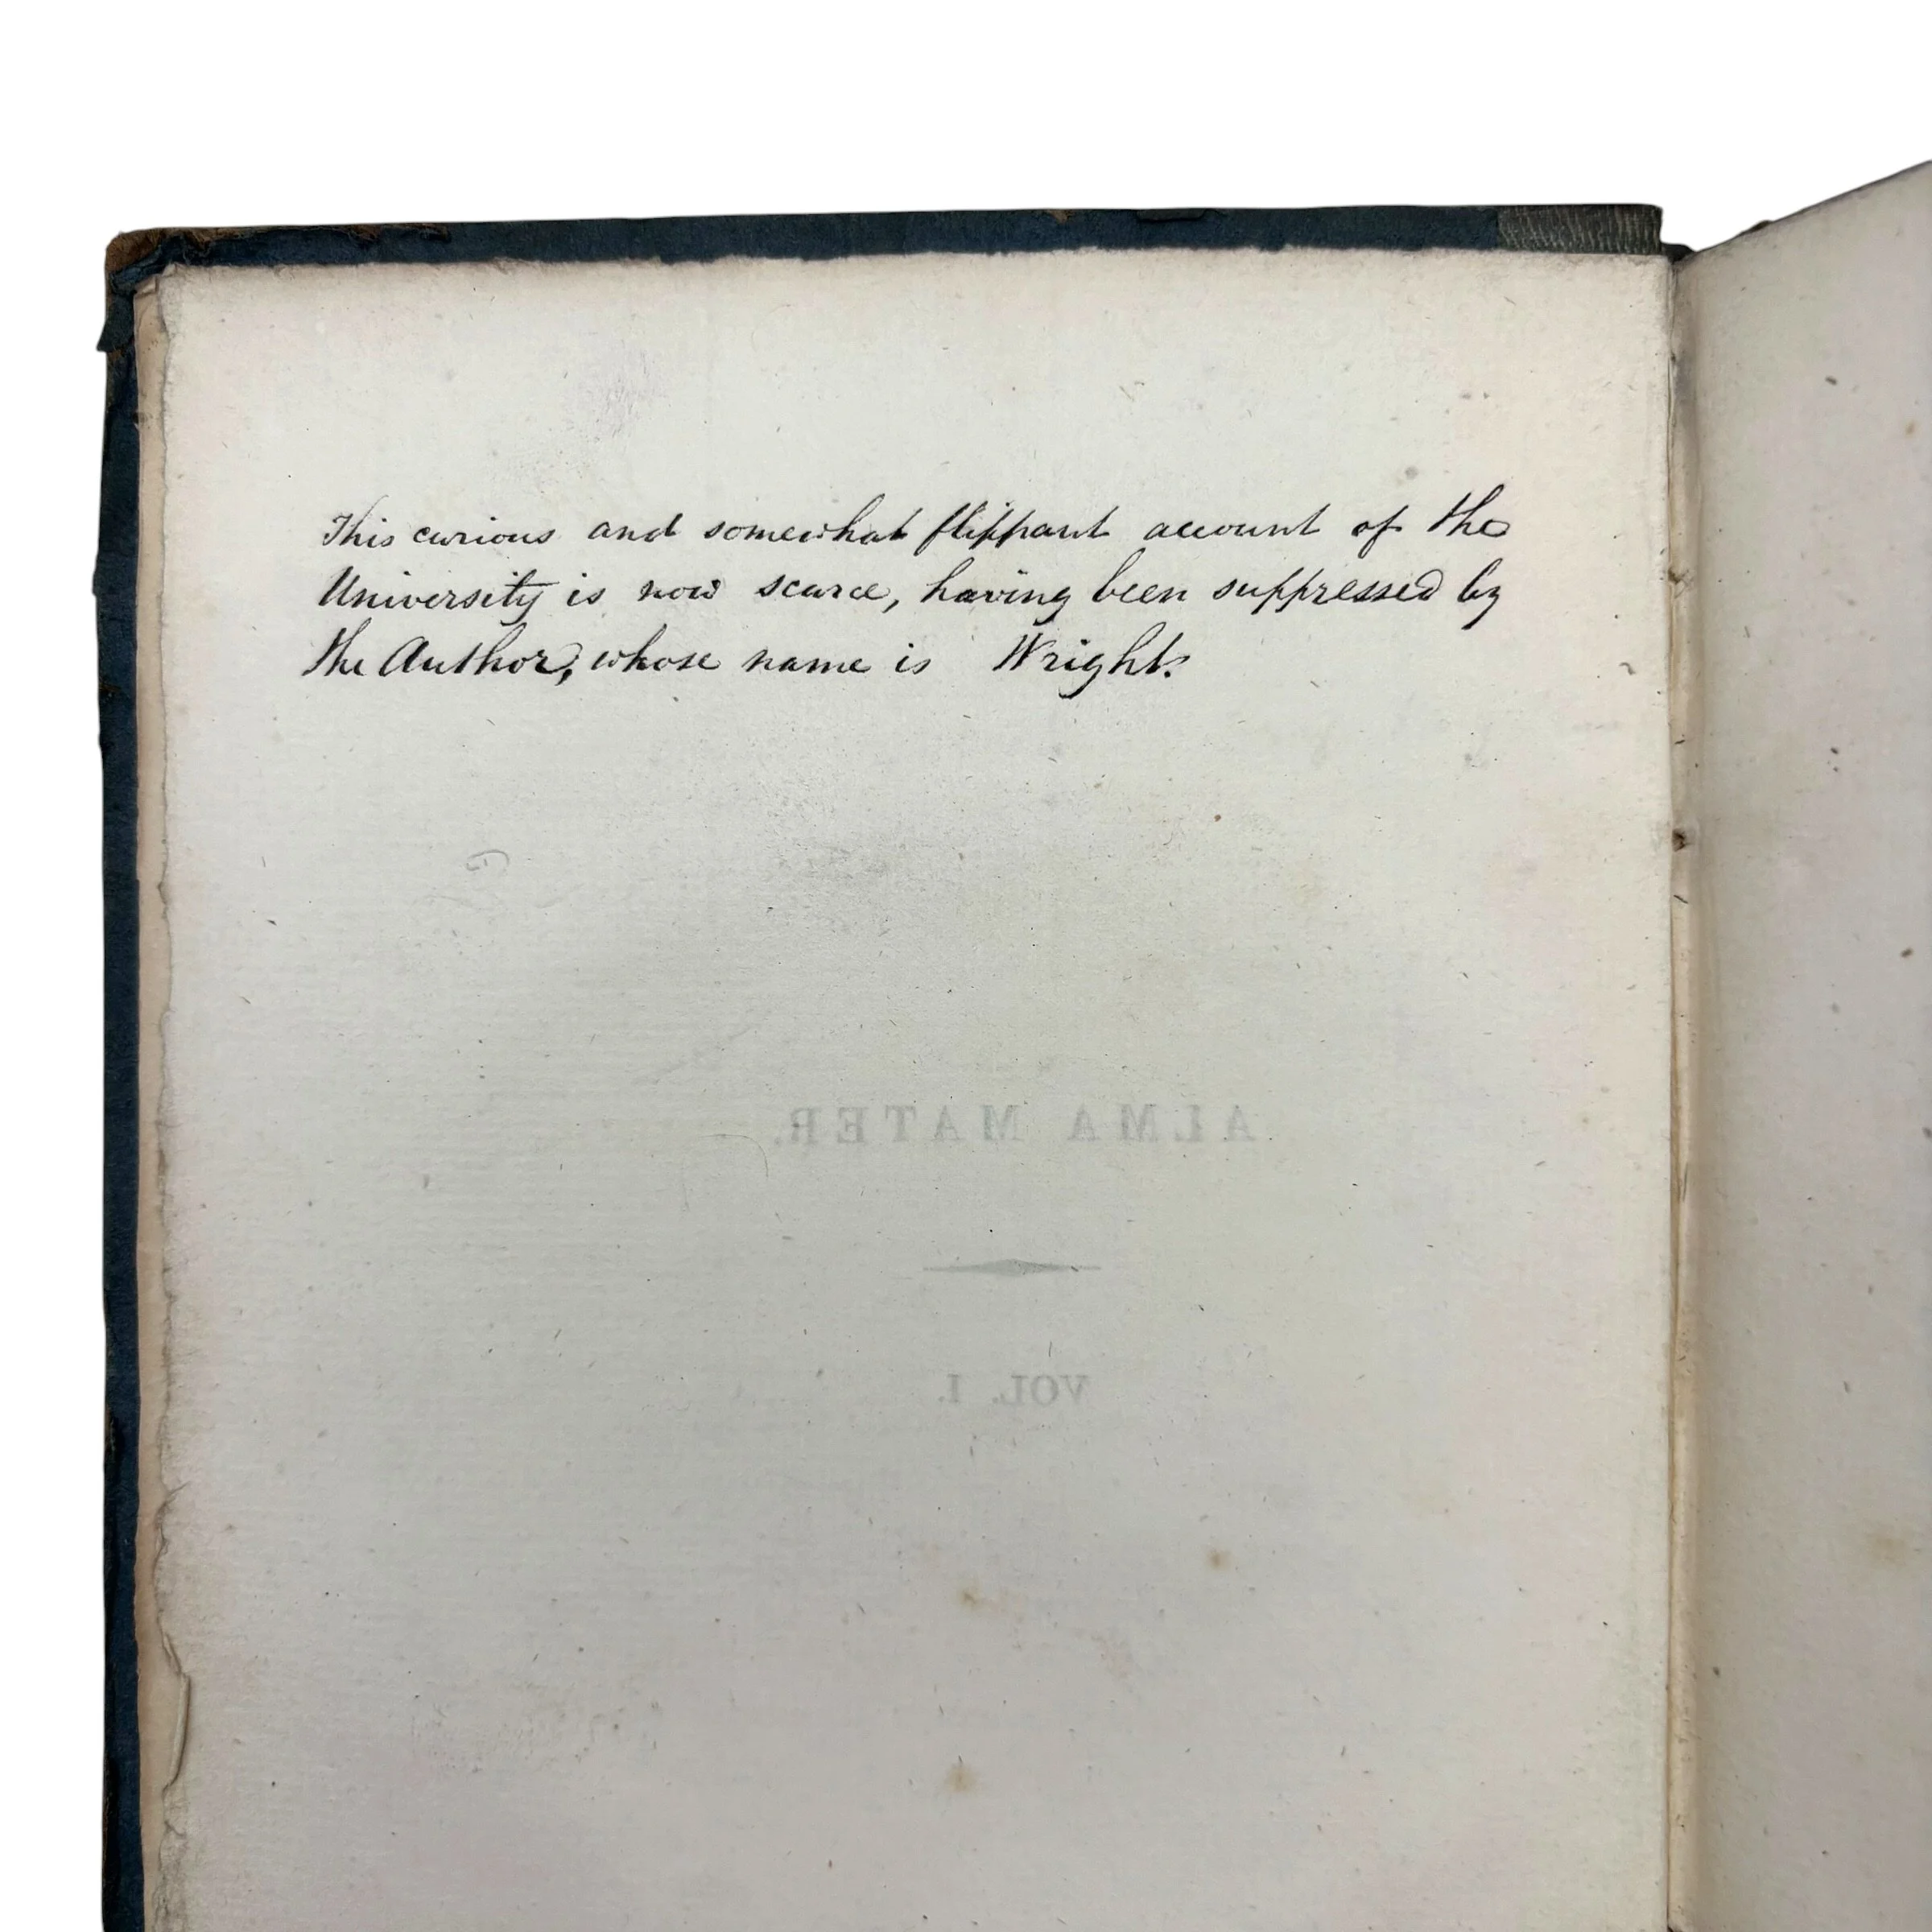 This curious and somewhat flippant account of the
University is now scarce, having been suppressed by
the Author, whose name is Wright.
ALMA MATER.
VOL. I.